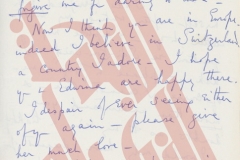 forgive me for daring to
Now I think yr are in Europe
indeed I believe in Switzerland
a country I adore - I hope
you & Edwina are happy there.
I despair of ever seeing either
of you again - please give
her much love -